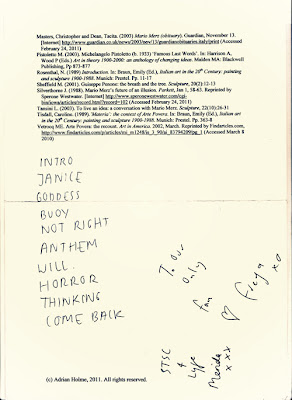 Masters, Christopher and Dean, Tacita. (2003) Mario Merz (obituary). Guardian, November 13.
[Internet] http://www.guardian.co.uk/news/2003/nov/13/guardianobituaries.italy/print (Accessed
February 24, 2011)
Pistoletto M. (2003). Michelangelo Pistoletto (b. 1933) 'Famous Last Words'. In: Harrison A,
Wood P (Eds.) Art in theory 1900-2000: an anthology of changing ideas. Malden MA: Blackwell
Publishing, Pp 873-877
Rosenthal, N. (1989) Introduction. In: Braun, Emily (Ed.), Italian art in the 20th Century: painting
and sculpture 1900-1988. Munich: Prestel. Pp. 11-17
Sheffield M. (2001). Guiseppe Penone: the breath and the tree. Sculpture, 20(2):12-13
Silverthorne J. (1988). Mario Merz's future of an illusion. Parkett, Jun 1, 58-63. Reprinted by
Sperone Westwater. [Internet] http://www.speronewestwater.com/cgi-
(Accessed February 24, 2011)
Tansini L. (2003). To live an idea: a conversation with Mario Merz. Sculpture, 22(10):26-31
Tisdall, Caroline. (1989). 'Materia': the context of Arte Povera. In: Braun, Emily (Ed.), Italian art
in the 20th Century: painting and sculpture 1900-1988. Munich: Prestel. Pp. 363-8
Vetrocq ME. Arte Povera: the recount. Art in America. 2002, March. Reprinted by Findarticles.com,
(Accessed March 8
2010)
INTRO
JANICE
GODDESS
BUOY
NOT RIGHT
ANTHEM
WILL.
HORROR
THINKING
COME BACK
To our
only
fan
♡ Freya
xo
STSC
+
Merida
xxx
(c) Adrian Holme, 2011. All rights reserved.